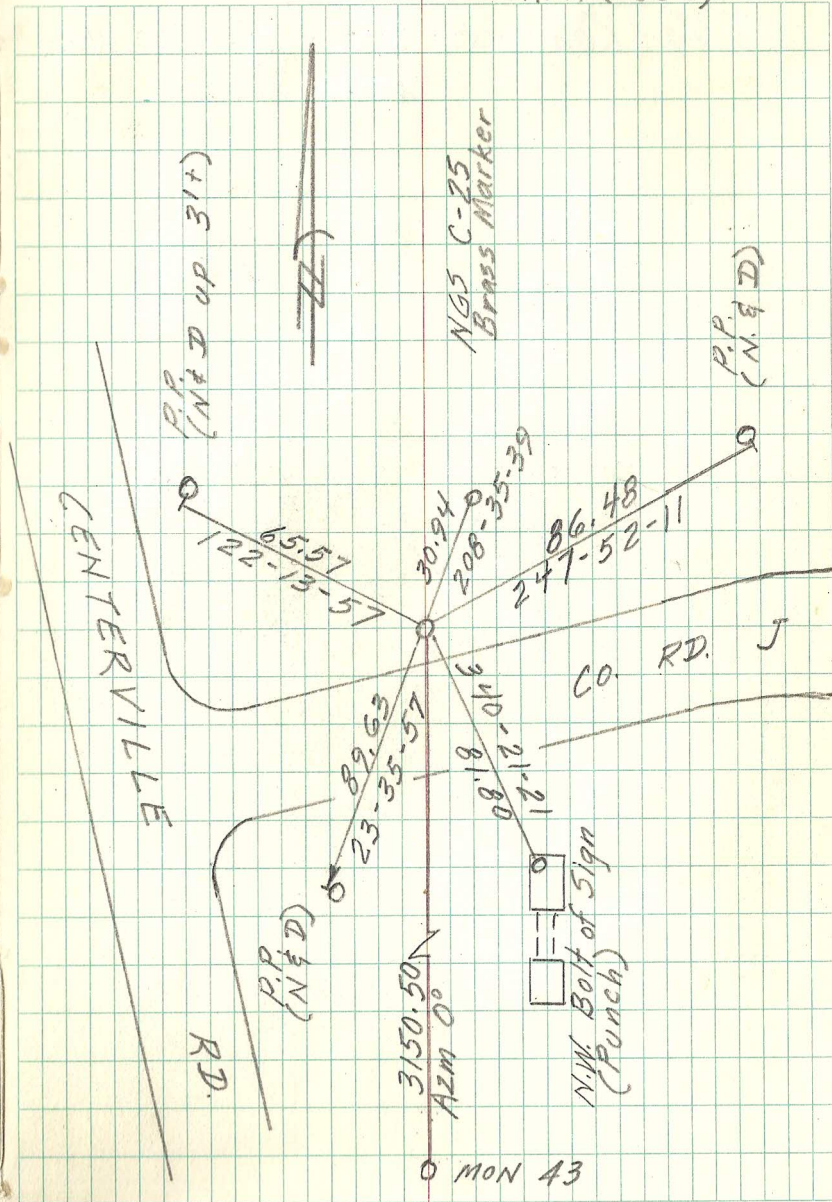 P.P.
(N & D up 3'+)
NGS C-25
Brass Marker
P.P.
(N. & D)
CENTERVILLE
RD.
65.57
122-13-57
30.94
208-35-39
86.48
247-52-11
CO. RD. J
89.63
23-35-57
340-21-21
81.80
P.P.
(N & D)
3150.50
Azm 0°
N.W. Bolt of Sign
(Punch)
MON 43